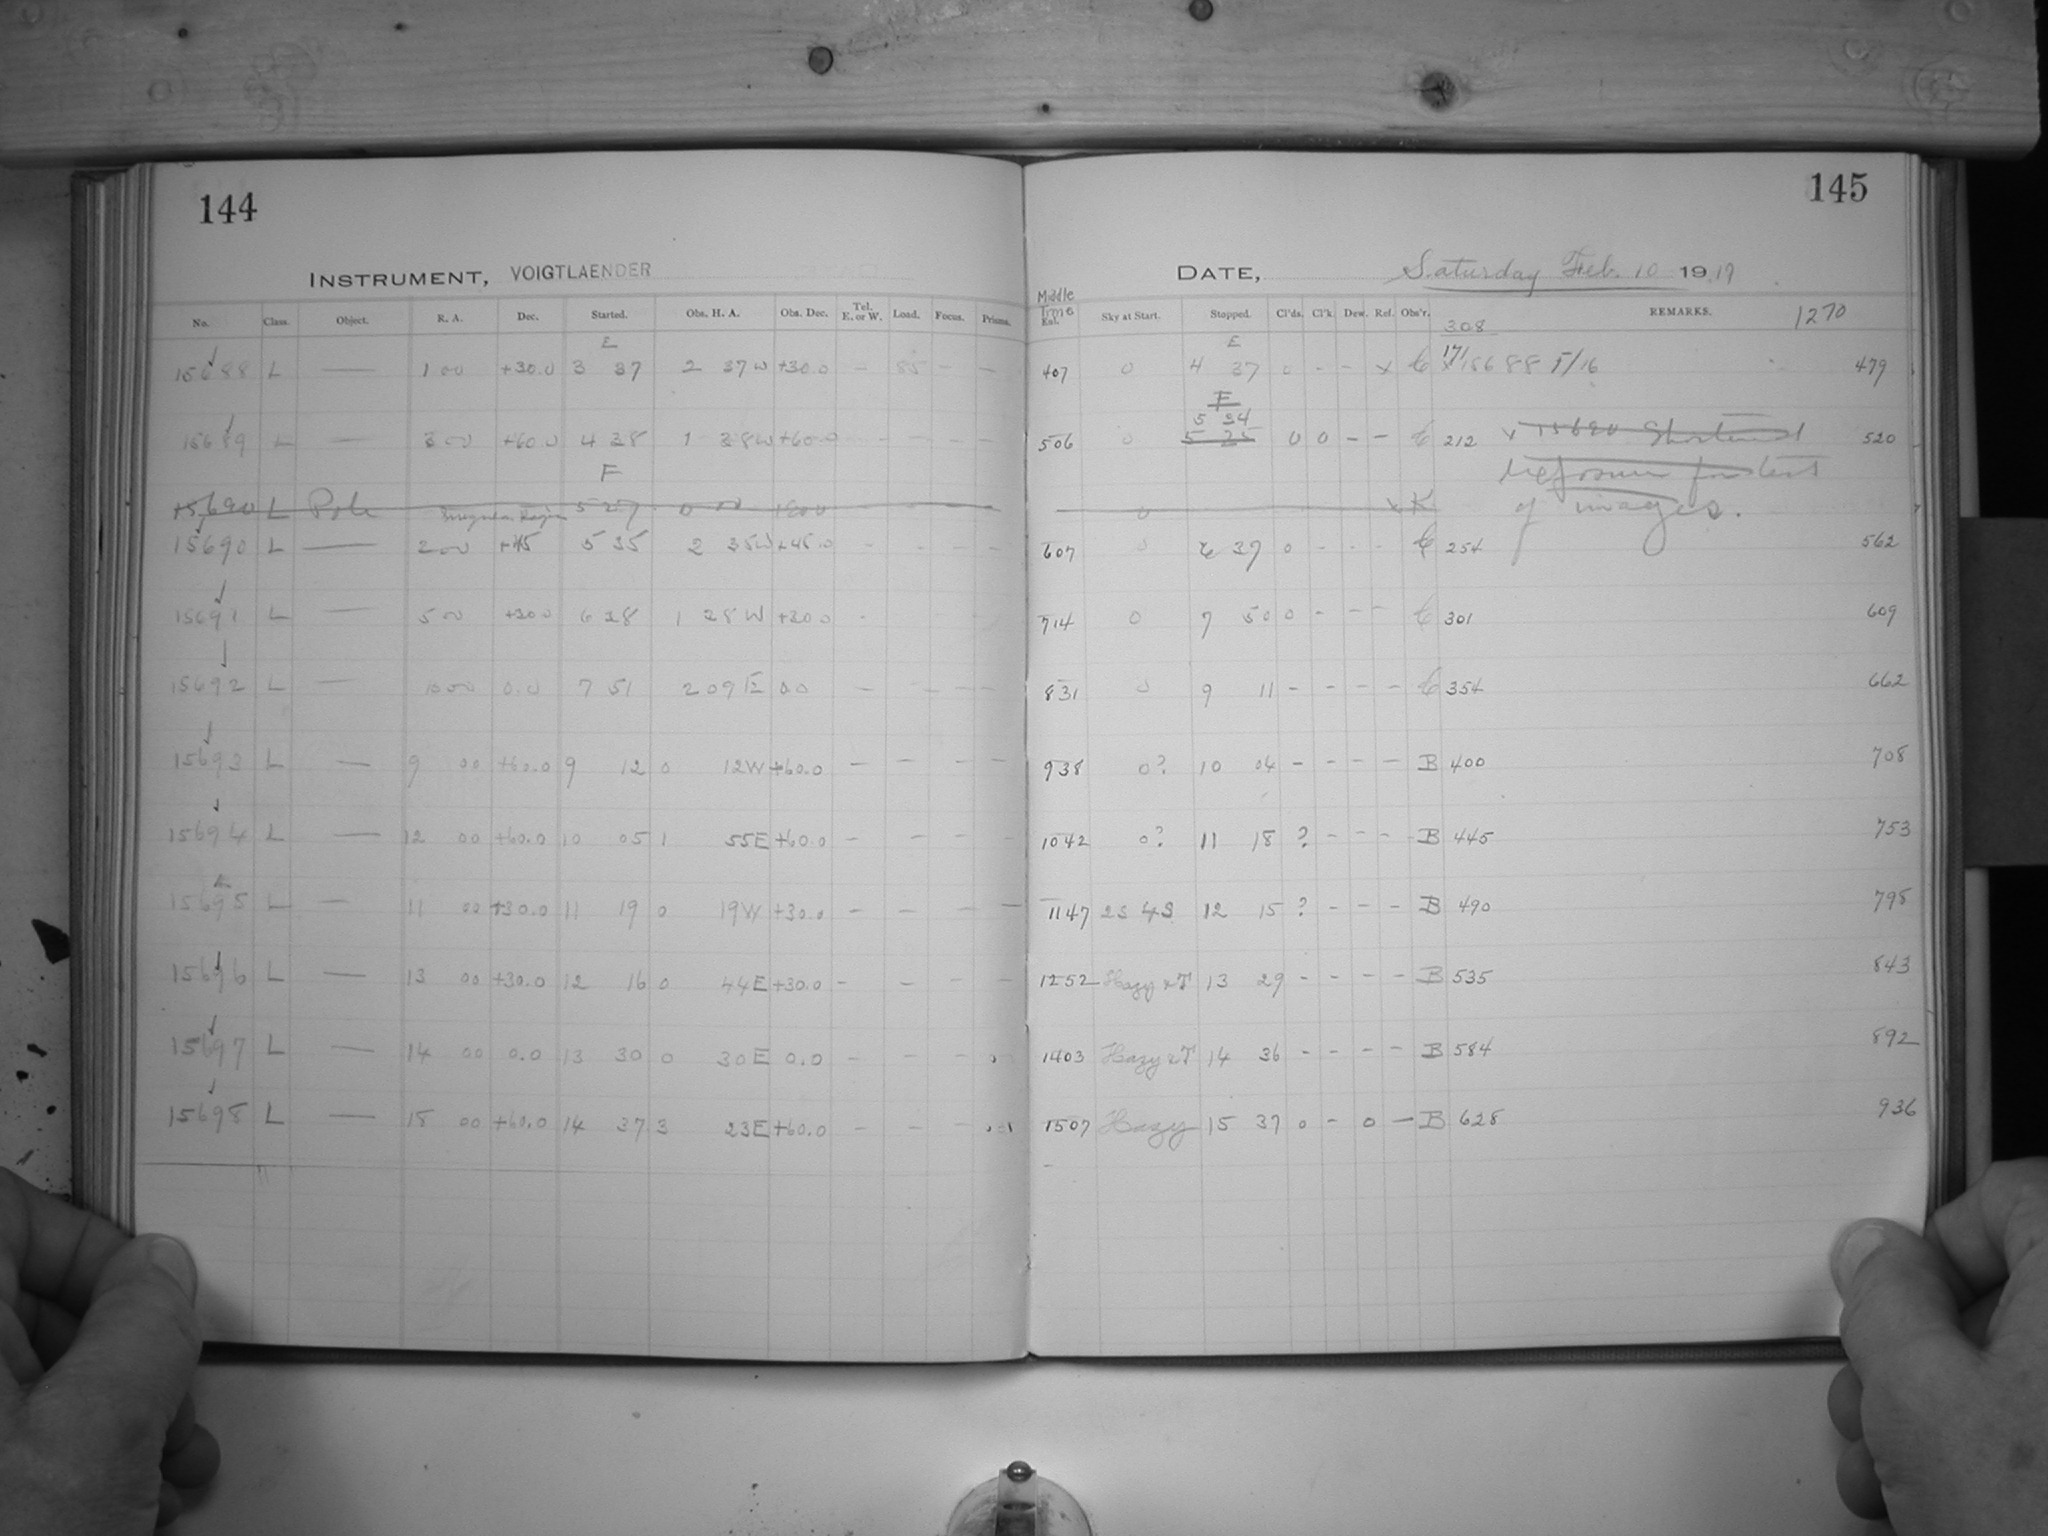 144
145
INSTRUMENT, VOIGTLAENDER
DATE, Saturday Feb. 10 1917
No. Class. Object. R. A. Dec. Started. Obs. H. A. Obs. Dec. Tel. E. or W. Load. Focus. Prisms. Middle Time Sky at Start. Stopped. Cl'ds. Cl'k Dew. Ref. Obs'r. REMARKS. 1270
308
E E
15688 L — 1 00 +30.0 3 37 2 37W +30.0 — 85 — — 407 0 4 37 0 - - x 171 x 15688 F/16 479
F
5 34
15689 L — 3 00 +60.0 4 38 1 38W +60.0 506 0 5 35 0 0 - - 212 x 15690 Shortened 520
F
for test
15690 L Pole 5 27 0 00 0 x K of images.
15690 L — 2 00 +45 5 35 2 35W +45.0 607 0 6 37 0 - - - 254 562
15691 L — 5 00 +30.0 6 38 1 28W +30.0 714 0 7 50 0 - - - 301 609
15692 L — 10 00 0.0 7 51 2 09E 0.0 — — — — 831 0 9 11 - - - - 354 662
15693 L — 9 00 +60.0 9 12 0 12W +60.0 — — — — 938 0? 10 04 - - - - B 400 708
15694 L — 12 00 +60.0 10 05 1 55E +60.0 - - - - 1042 0? 11 18 ? - - - B 445 753
15695 L — 11 00 +30.0 11 19 0 19W +30.0 - - - - 1147 2S 4S 12 15 ? - - - B 490 798
15696 L — 13 00 +30.0 12 16 0 44E +30.0 - - - - 1252 Hazy &T 13 29 - - - - B 535 843
15697 L — 14 00 0.0 13 30 0 30E 0.0 - - - 1403 Hazy &T 14 36 - - - - B 584 892
15698 L — 18 00 +60.0 14 37 3 23E +60.0 - - - 1507 Hazy 15 37 0 - 0 — B 628 936